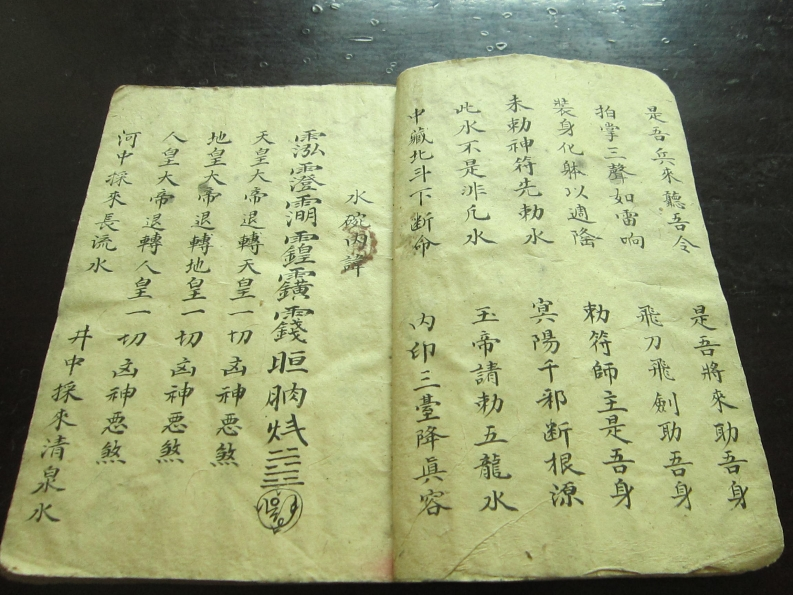 是吾兵來聽吾令 是吾將來助吾身
拍掌三聲如雷响 飛刀飛劍助吾身
裝身化躰以適隆 勅符師主是吾身
未勅神符先勅水 冥陽千邪断根源
此水不是非凡水 玉帝請勅五龍水
中藏北斗下断命 内印三臺降真容
水碗内諱
天皇大帝退轉天皇一切凶神悪煞
地皇大帝退轉地皇一切凶神悪煞
人皇大帝退轉人皇一切凶神悪煞
河中採來長流水 井中採來清泉水